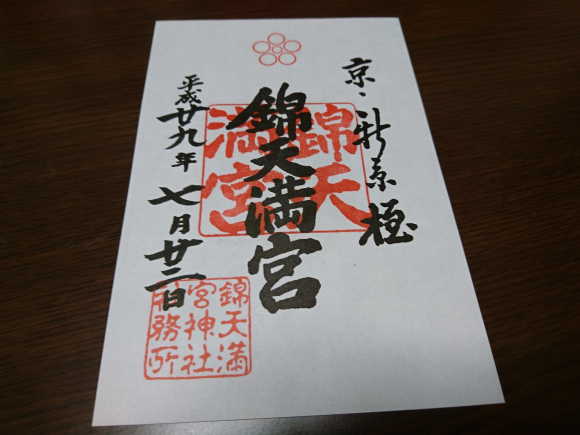 京・新京極
錦天満宮
錦天
満宮
平成廿九年七月廿二日
錦天満
宮神社
社務所